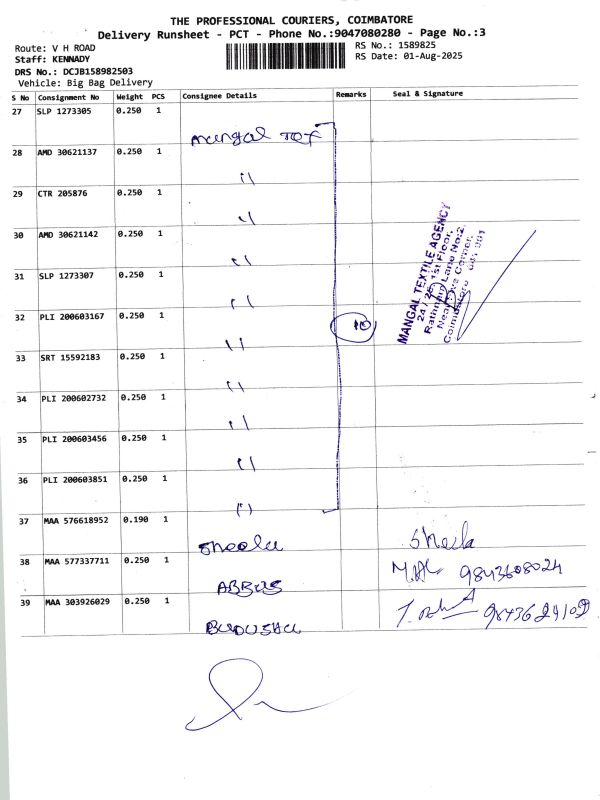 THE PROFESSIONAL COURIERS, COIMBATORE
Delivery Runsheet - PCT - Phone No.:9047080280 - Page No.:3
Route: V H ROAD
RS No.: 1589825
Staff: KENNADY
RS Date: 01-Aug-2025
DRS No.: DCJB158982503
Vehicle: Big Bag Delivery
S No Consignment No Weight PCS Consignee Details Remarks Seal & Signature
27 SLP 1273305 0.250 1
Mangal Tex
28 AMD 30621137 0.250 1
"
29 CTR 205876 0.250 1
"
30 AMD 30621142 0.250 1
"
31 SLP 1273307 0.250 1
"
32 PLI 200603167 0.250 1 10
"
33 SRT 15592183 0.250 1
"
34 PLI 200602732 0.250 1
"
35 PLI 200603456 0.250 1
"
36 PLI 200603851 0.250 1
"
MANGAL TEXTILE AGENCY
1st Floor,
Lane No:2,
Corner,
Coimbatore
37 MAA 576618952 0.190 1
Sheela Sheela
38 MAA 577337711 0.250 1
ABBAS 9843608024
39 MAA 303926029 0.250 1